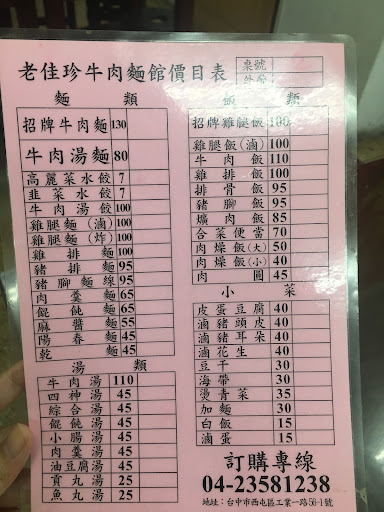 老佳珍牛肉麵館價目表
桌號
外帶
麵 類
招牌牛肉麵 130
牛肉湯麵 80
高麗菜水餃 7
韭菜水餃 7
牛肉湯餃 100
雞腿麵(滷) 100
雞腿麵(炸) 100
雞排麵 100
豬排麵 95
豬腳麵線 95
肉羹麵 65
餛飩麵 65
麻醬麵 55
陽春麵 45
乾麵 45
湯 類
牛肉湯 110
四神湯 45
綜合湯 45
餛飩湯 45
小腸湯 45
肉羹湯 45
油豆腐湯 45
貢丸湯 25
魚丸湯 25
飯 類
招牌雞腿飯 100
雞腿飯(滷) 100
牛肉飯 110
雞排飯 100
排骨飯 95
豬腳飯 95
爌肉飯 85
合菜便當 70
肉燥飯(大) 50
肉燥飯(小) 40
肉圓 45
小 菜
皮蛋豆腐 40
滷豬頭皮 40
滷豬耳朵 40
滷花生 40
豆干 30
海帶 30
燙青菜 35
加麵 30
白飯 15
滷蛋 15
訂購專線
04-23581238
地址：台中市西屯區工業一路58-1號